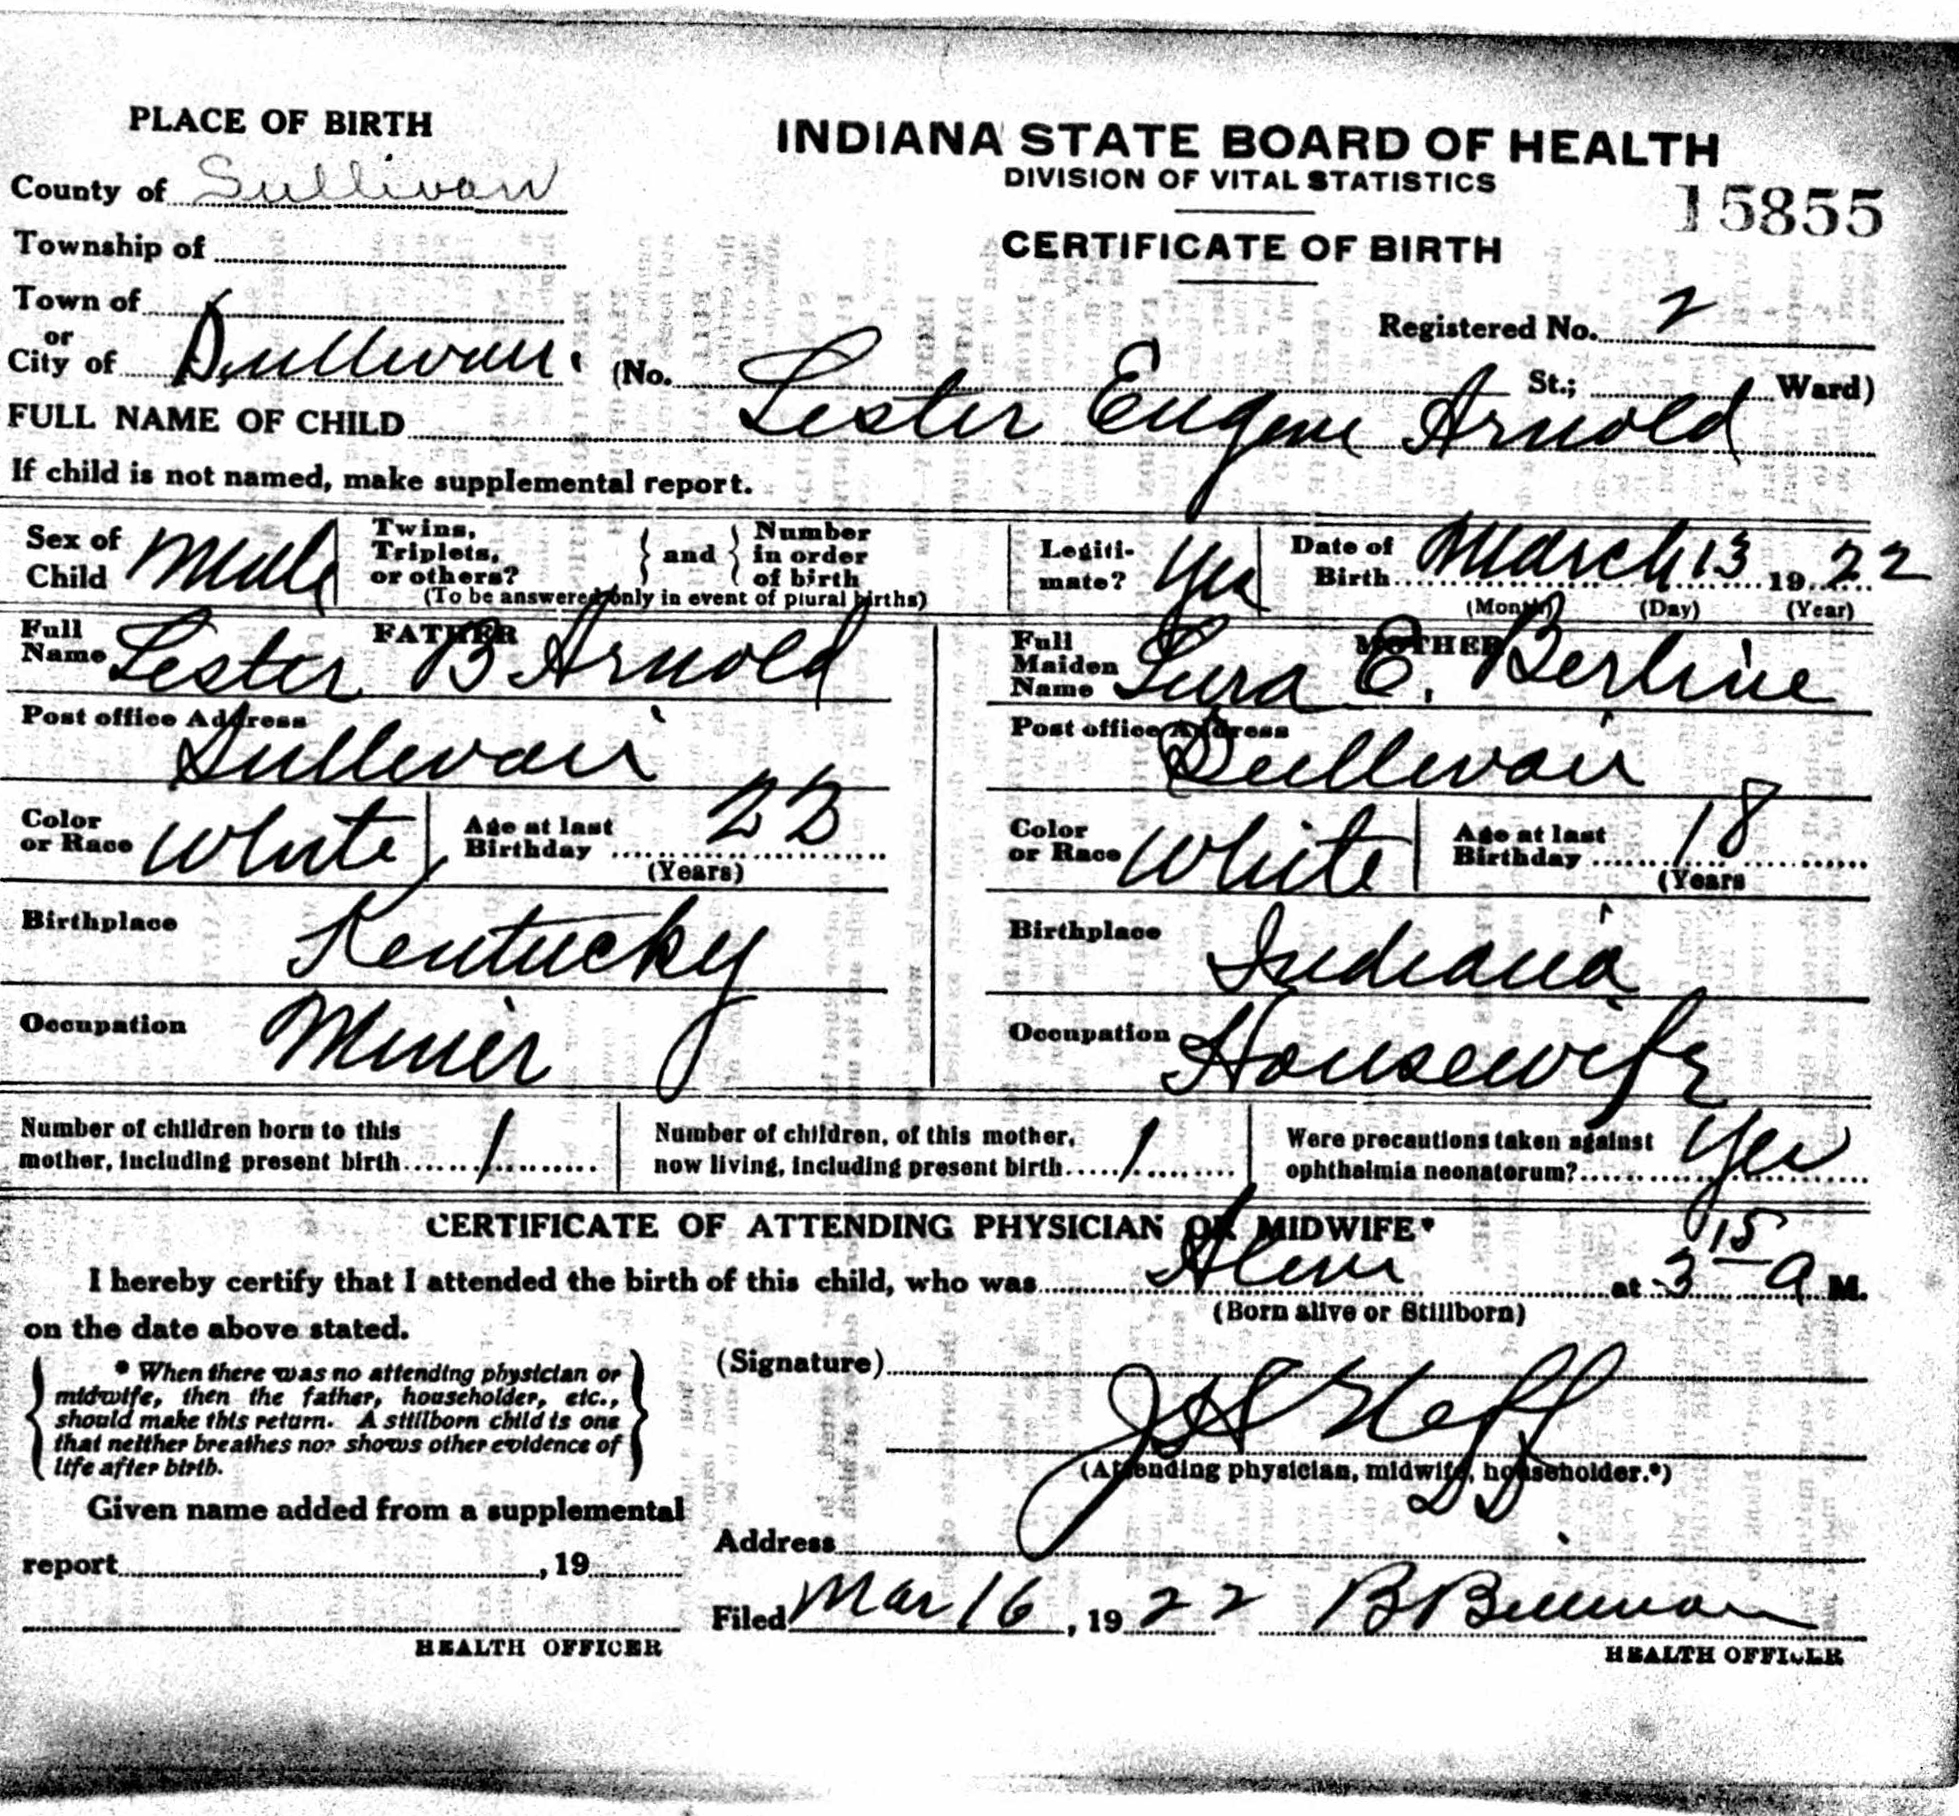 PLACE OF BIRTH
INDIANA STATE BOARD OF HEALTH
DIVISION OF VITAL STATISTICS
15855
County of Sullivan
Township of
CERTIFICATE OF BIRTH
Town of
or
City of Sullivan
Registered No. 2
(No. St.; Ward)
FULL NAME OF CHILD Lester Eugene Arnold
If child is not named, make supplemental report.
Sex of Child Male
Twins, Triplets, or others? and Number in order of birth
(To be answered only in event of plural births)
Legiti-mate? Yes
Date of Birth March 13 1922
(Month) (Day) (Year)
FATHER
Full Name Lester B Arnold
Post office Address Sullivan
Color or Race White
Age at last Birthday 23
(Years)
Birthplace Kentucky
Occupation Miner
MOTHER
Full Maiden Name Lura E. Berline
Post office Address Sullivan
Color or Race White
Age at last Birthday 18
(Years
Birthplace Indiana
Occupation Housewife
Number of children born to this mother, including present birth 1
Number of children, of this mother, now living, including present birth 1
Were precautions taken against ophthalmia neonatorum? Yes
CERTIFICATE OF ATTENDING PHYSICIAN OR MIDWIFE*
I hereby certify that I attended the birth of this child, who was Alive at 3 15 A M.
(Born alive or Stillborn)
on the date above stated.
* When there was no attending physician or
midwife, then the father, householder, etc.,
should make this return. A stillborn child is one
that neither breathes nor shows other evidence of
life after birth.
(Signature) J H Neff
(Attending physician, midwife, householder.*)
Given name added from a supplemental
report , 19
Address
Filed Mar 16, 1922 B Billman
HEALTH OFFICER
HEALTH OFFICER